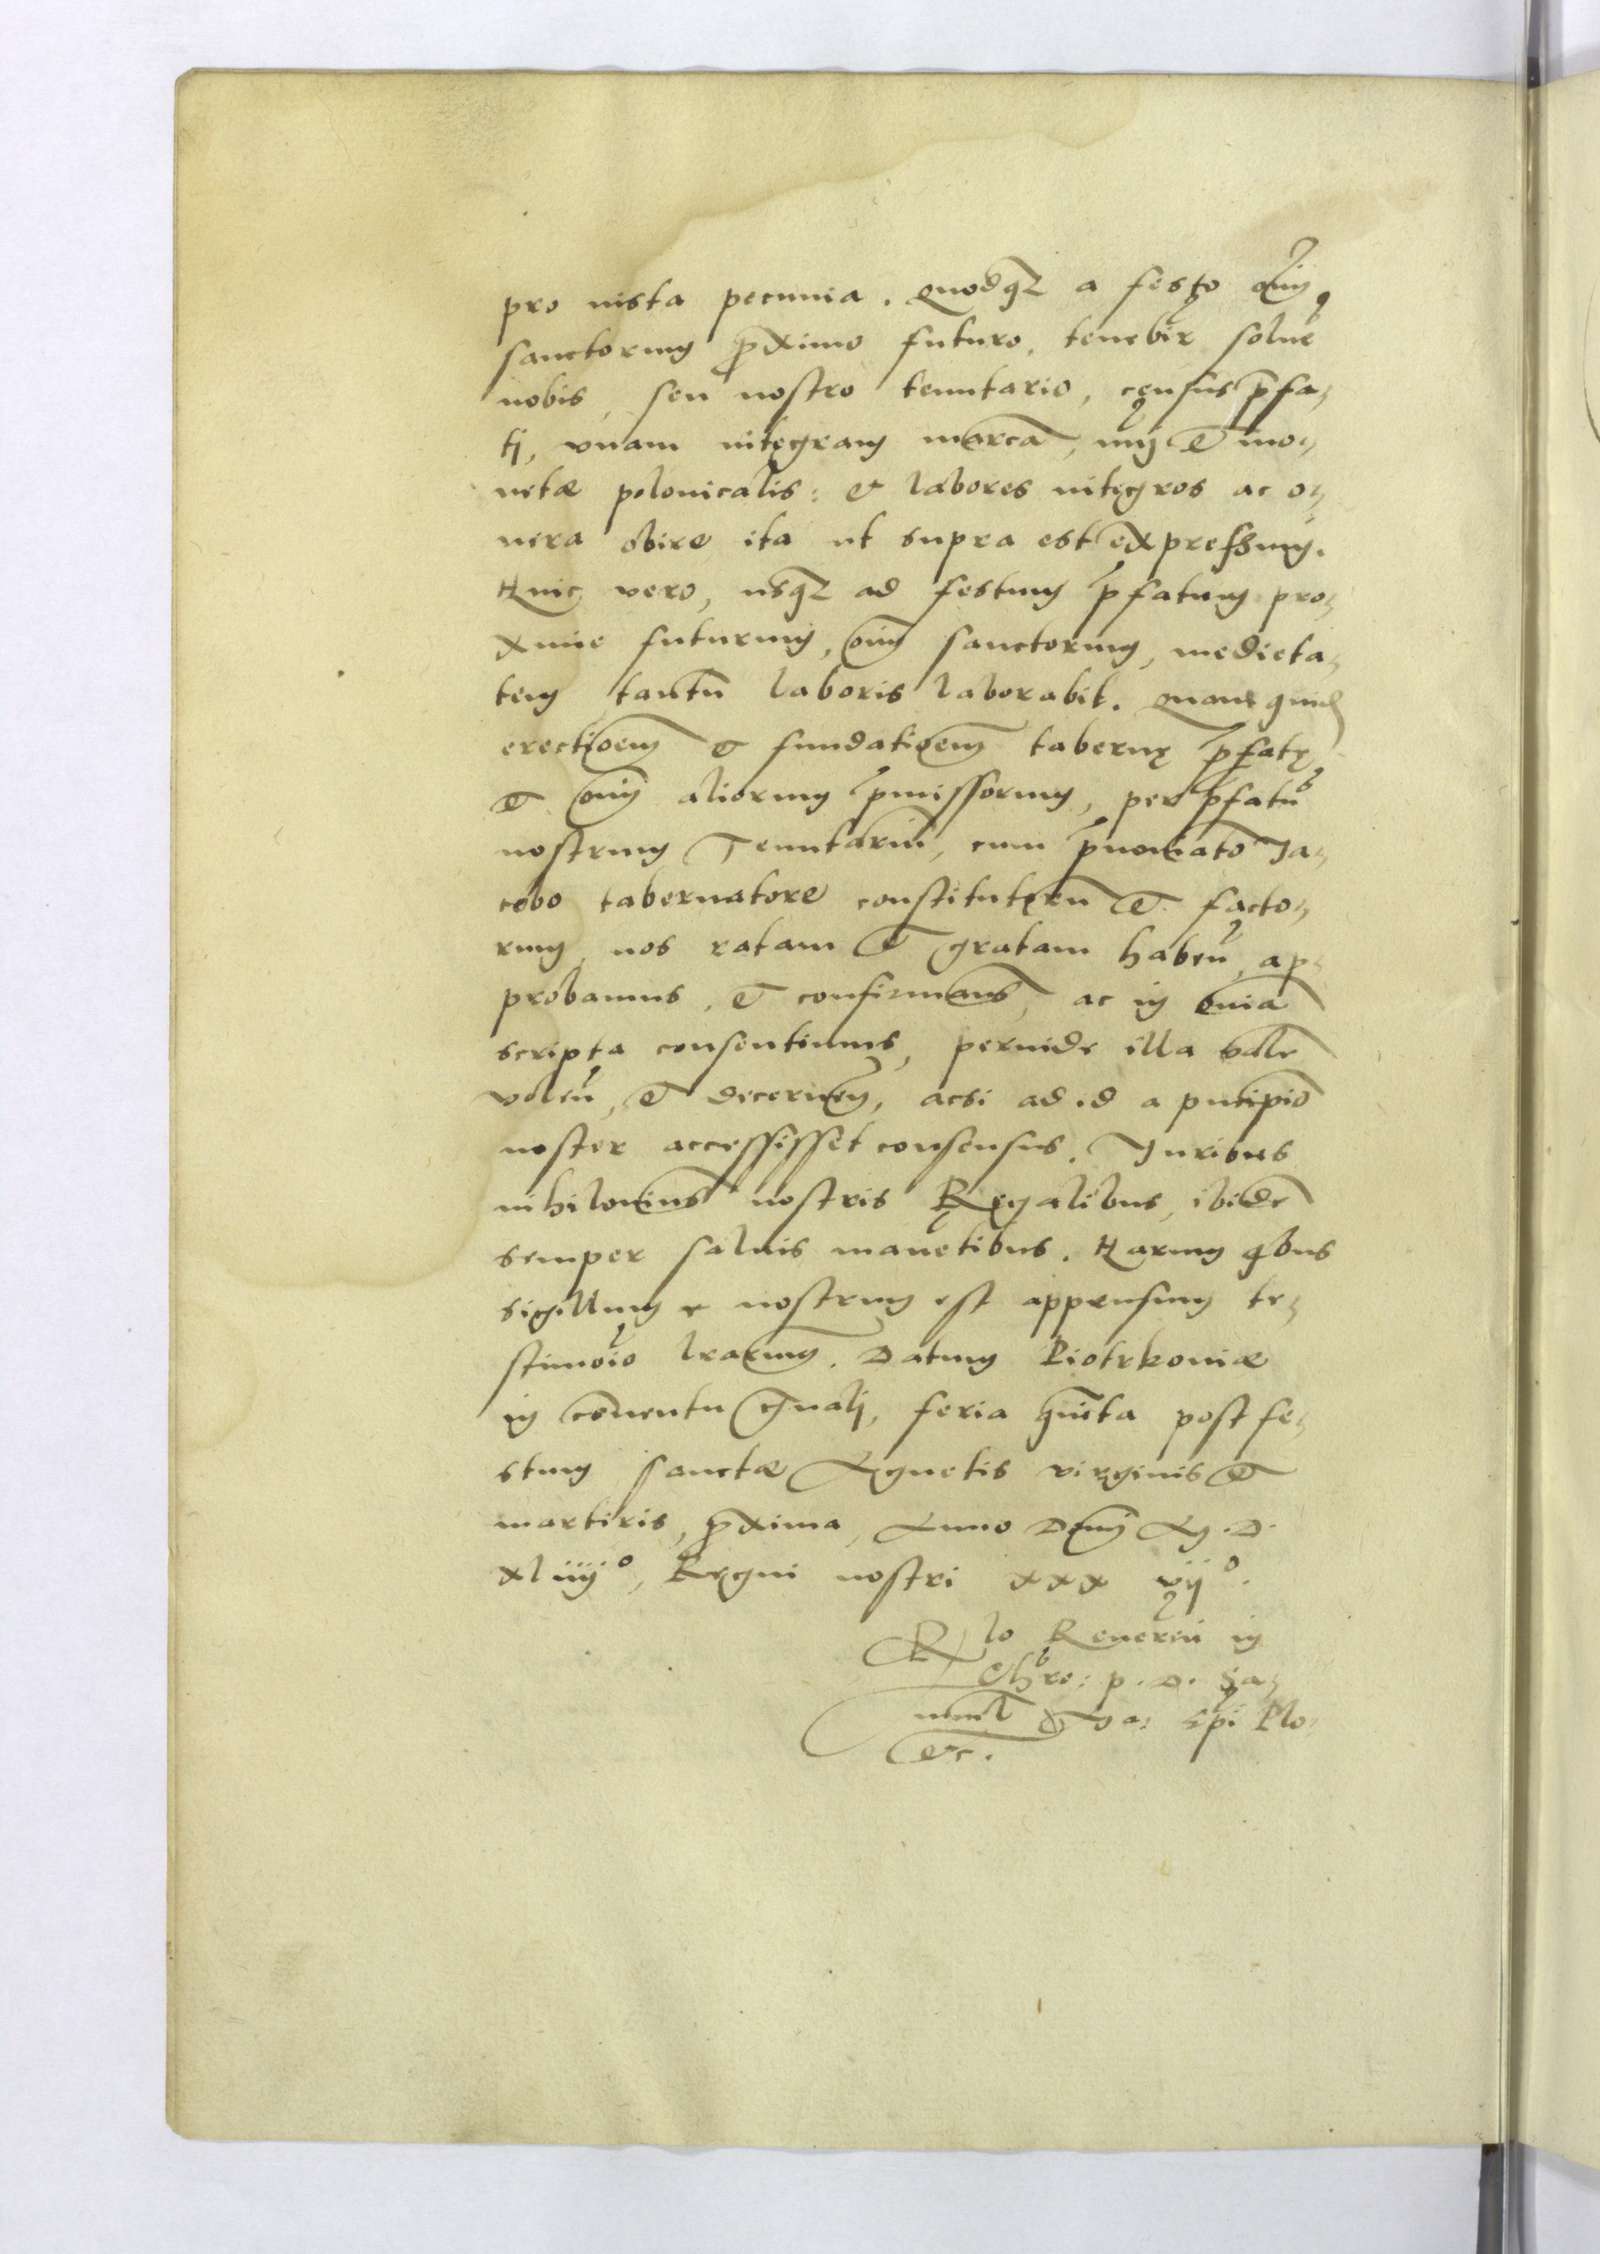 pro iusta pecunia. Quodq3 a festo oim
sanctorum proximo futuro, tenebir soluer
nobis, seu nostro tenutario, census pfa-
ti, vnam integram marcã, nuj et mo-
netæ polonicalis: et labores integros ac o-
nera obire ita ut supra est expressum.
Hinc vero, usq3 ad festum pfatum pro-
xime futurum, oim sanctorum, medieta-
tem tantũ laboris laborabit. Quam quid
erectioem et fundatioem tabernę pfatę
et oim aliorum pmissorum, per pfatũ
nostrum Tenutariũ, cum pnoiato Ja-
cobo tabernatore constitutorũ et facto-
rum, nos ratam et gratam habeñ, ap-
probamus, et confirmams, ac in om̃ia
scripta consentiums, perinde illa valer
voleñ, et decerneñ, acsi ad id a pncipio
noster accessisset consensus. Juribus
nihilomins nostris Regalibus, ibidẽ
semper saluis manẽtibus. Harum qbus
sigillum nostrum est appensum te-
stimoĩo lrarum. Datum Piotrkoviæ
in cõuentu gñali, feria quĩta post fe-
stum sanctæ Agnetis virginis et
martiris, proxima, Anno Dñi M. D.
xliiijo, Regni nostri xxx vijo.
Rlo Reuereñ in
Chro: p. D. Sa-
muel et Va: Epi Plo-
etc.